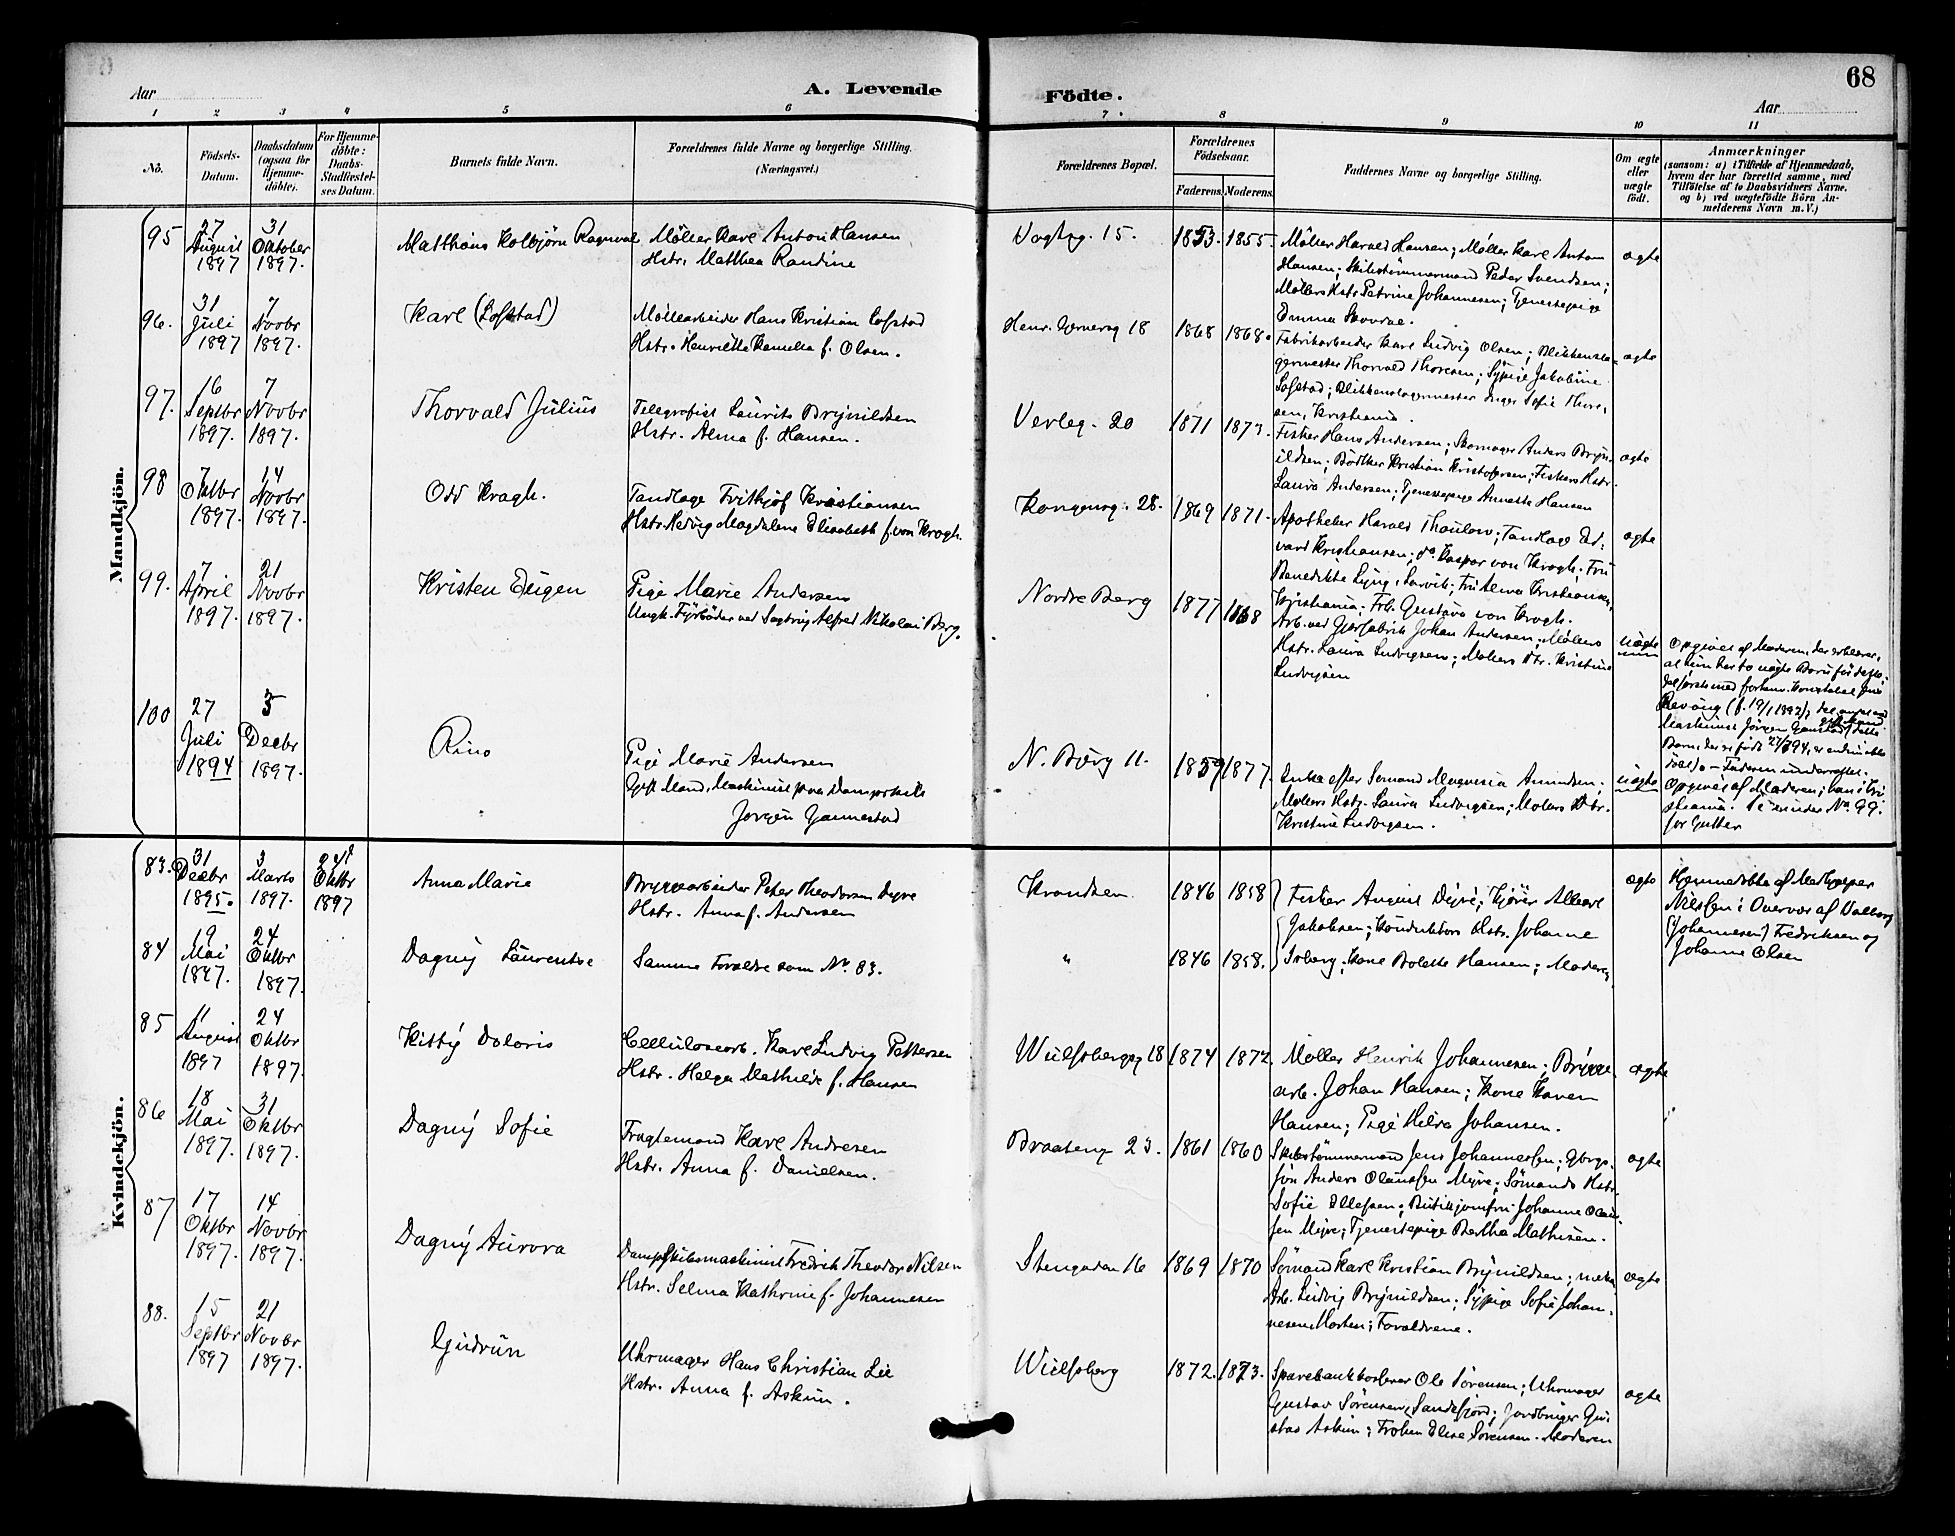 68
Aar
A. Levende
Födte.
Aar
1 2 3 4 5 6 7 8 9 10 11
No.
Födsels-
Datum.
Daabsdatum
(ogsaa for
Hjemme-
döbte).
For Hjemme-
döbte:
Daabs-
Stadfæstel-
ses Datum.
Barnets fulde Navn.
Forældrenes fulde Navne og borgerlige Stilling.
(Næringsvei.)
Forældrenes Bopæl.
Forældrenes
Födselsaar.
Faderens. Moderens.
Faddernes Navne og borgerlige Stilling.
Om ægte
eller
uægte
födt.
Anmærkninger
(saasom: a) i Tilfælde af Hjemmedaab,
hvem der har forrettet samme, med
Tilföielse af to Daabsvidners Navne.
og b) ved uægtefödte Börn An-
melderens Navn m. V.)
Mandkjön.
95 27 August 1897 31 Oktober 1897.
Matthæus Kolbjörn Ragnvald
Möller Karl Anton Hansen
Hstr. Matthea Randine
15. 1853. 1855.
Möller Harald Hansen; Möller Karl Anton
Hansen; Skibstömmermand Peder Svendsen;
Möllers Hstr Petrine Johannesen; Tjenestepige
Emma
ægte
96. 31 Juli 1897 7 Novbr 1897.
Karl (Lofstad)
Möllearbeider Hans Kristian Lofstad
Hstr. Henriette Kamilla f. Olsen.
18 1868 1868.
Fabrikarbeider Karl Ludvig Olsen; Blikkensla-
germester Thorvald Thoresen; Sypige Jakobine
Lofstad; Blikkenslagermester Inger Sofie Thore-
sen, Kristiania.
ægte
97. 16 Septbr 1897. 7 Novbr 1897.
Thorvald Julius
Telegrafist Laurits Brynildsen
Hstr. Alma f. Hansen.
Verleg. 20 1871 1873.
Fisker Hans Andersen; Skomager Anders Bryn-
ildsen; Bödker Kristian Kristofersen; Fiskers Hstr.
Laura Andersen; Tjenestepige Annette Hansen
ægte
98 7 Oktbr 1897. 14 Novbr 1897.
Odd Kragh.
Tandlæge Frithjof Kristiansen
Hstr. Hedvig Magdalene Elisabeth f. von Krogh.
Kongensg. 28. 1869 1871.
Apotheker Harald Thaulow; Tandlæge Ed-
vard Kristiansen; do Kaspar von Krogh; Fru
Benedikte Ljung, Larvik; Fru Alma Kristiansen,
Kristiania; Frk. Gustava von Krogh.
ægte
99. 7 April 1897. 21 Novbr 1897.
Kristen Eugen
Pige Marie Andersen
Ungk. Fyrböder ved Sagbrug Alfred Nikolai Berg.
Nordre Berg 1877 1868
Arb. ved Johan Andersen; Möllers
Hstr. Laura Ludvigsen; Möllers Dtr. Kristine
Ludvigsen
uægte
Opgivet af Moderen, der erklærer,
at hun har to uægte Börn för dette,
100 27 Juli 1894 5 Decbr 1897.
Rino
Pige Marie Andersen
Gift Mand, Maskinist paa Dampskib
Jörgen Gannestad
N. Bjerg 11. 1859 1877.
Enke efter Sömand Amundsen;
Möllers Hstr. Laura Ludvigsen; Möllers Dtr.
Kristine Ludvigsen.
uægte
Opgivet af Moderen; han i Kri-
stiania. Se under No 99.
for Gutter
Kvindekjön.
83. 31 Decbr 1895. 3 Marts 1897. 24 Oktbr 1897
Anna Marie
Bryggearbeider Peter Theodorsen Dyre
Hstr. Anna f. Andersen
1846 1858
Fisker August Dyre; Kjörer Alkarl
Jakobsen; Konduktörs Hstr. Johanne
Solberg; Kone Bolette Hansen; Moderen
ægte
Hjemmedöbt af Madhjælper
Nilssen i Overvær af Valborg
(Johannesen) Fredriksen og
Johanne Olsen
84 19 Mai 1897. 24 Oktbr 1897.
Dagny Laurentse
Samme Forældre som No. 83.
" 1846 1858.
85 11 August 1897 24 Oktbr 1897.
Kitty Doloris
Cellulosearb. Karl Ludvig Pettersen
Hstr. Helga Mathilde f. Hansen
Wulfsbergsg 18 1874 1872.
Möller Henrik Johannesen; Brygge-
arb. Johan Hansen; Kone Karen
Hansen; Pige Hilda Johansen.
ægte
86 18 Mai 1897. 31 Oktbr 1897.
Dagny Sofie
Fragtemand Karl Andresen
Hstr. Anna f. Danielsen.
Braateng 23. 1861 1860
Skibstömmermand Jens Johannessen;
Anders Olaussen Myre; Sömands Hstr.
Sofie Ellefsen; Butikjomfru Johanne Olaus-
sen Myre; Tjenestepige Bertha Mathisen.
ægte
87 17 Oktbr 1897. 14 Novbr 1897.
Dagny Aurora
Dampskibsmaskinist Fredrik Theodor Nilsen
Hstr. Selma Kathrine f. Johannesen
Stengaden 16 1869 1870
Sömand Karl Kristian Brynildsen; mek.
Arb. Ludvig Brynildsen; Sypige Sofie Johan-
nesen Horten; Forældrene.
ægte
88. 15 Septbr 1897 21 Novbr 1897.
Gudrun
Uhrmager Hans Christian Lie
Hstr. Anna f. Askim.
Wulfsberg 1872. 1873.
Sparebankkasserer Ole Sörensen; Uhrmager
Gustav Sörensen, Sandefjord; Jordbruger Gu-
stav Askim; Fröken Elise Sörensen. Moderen
ægte